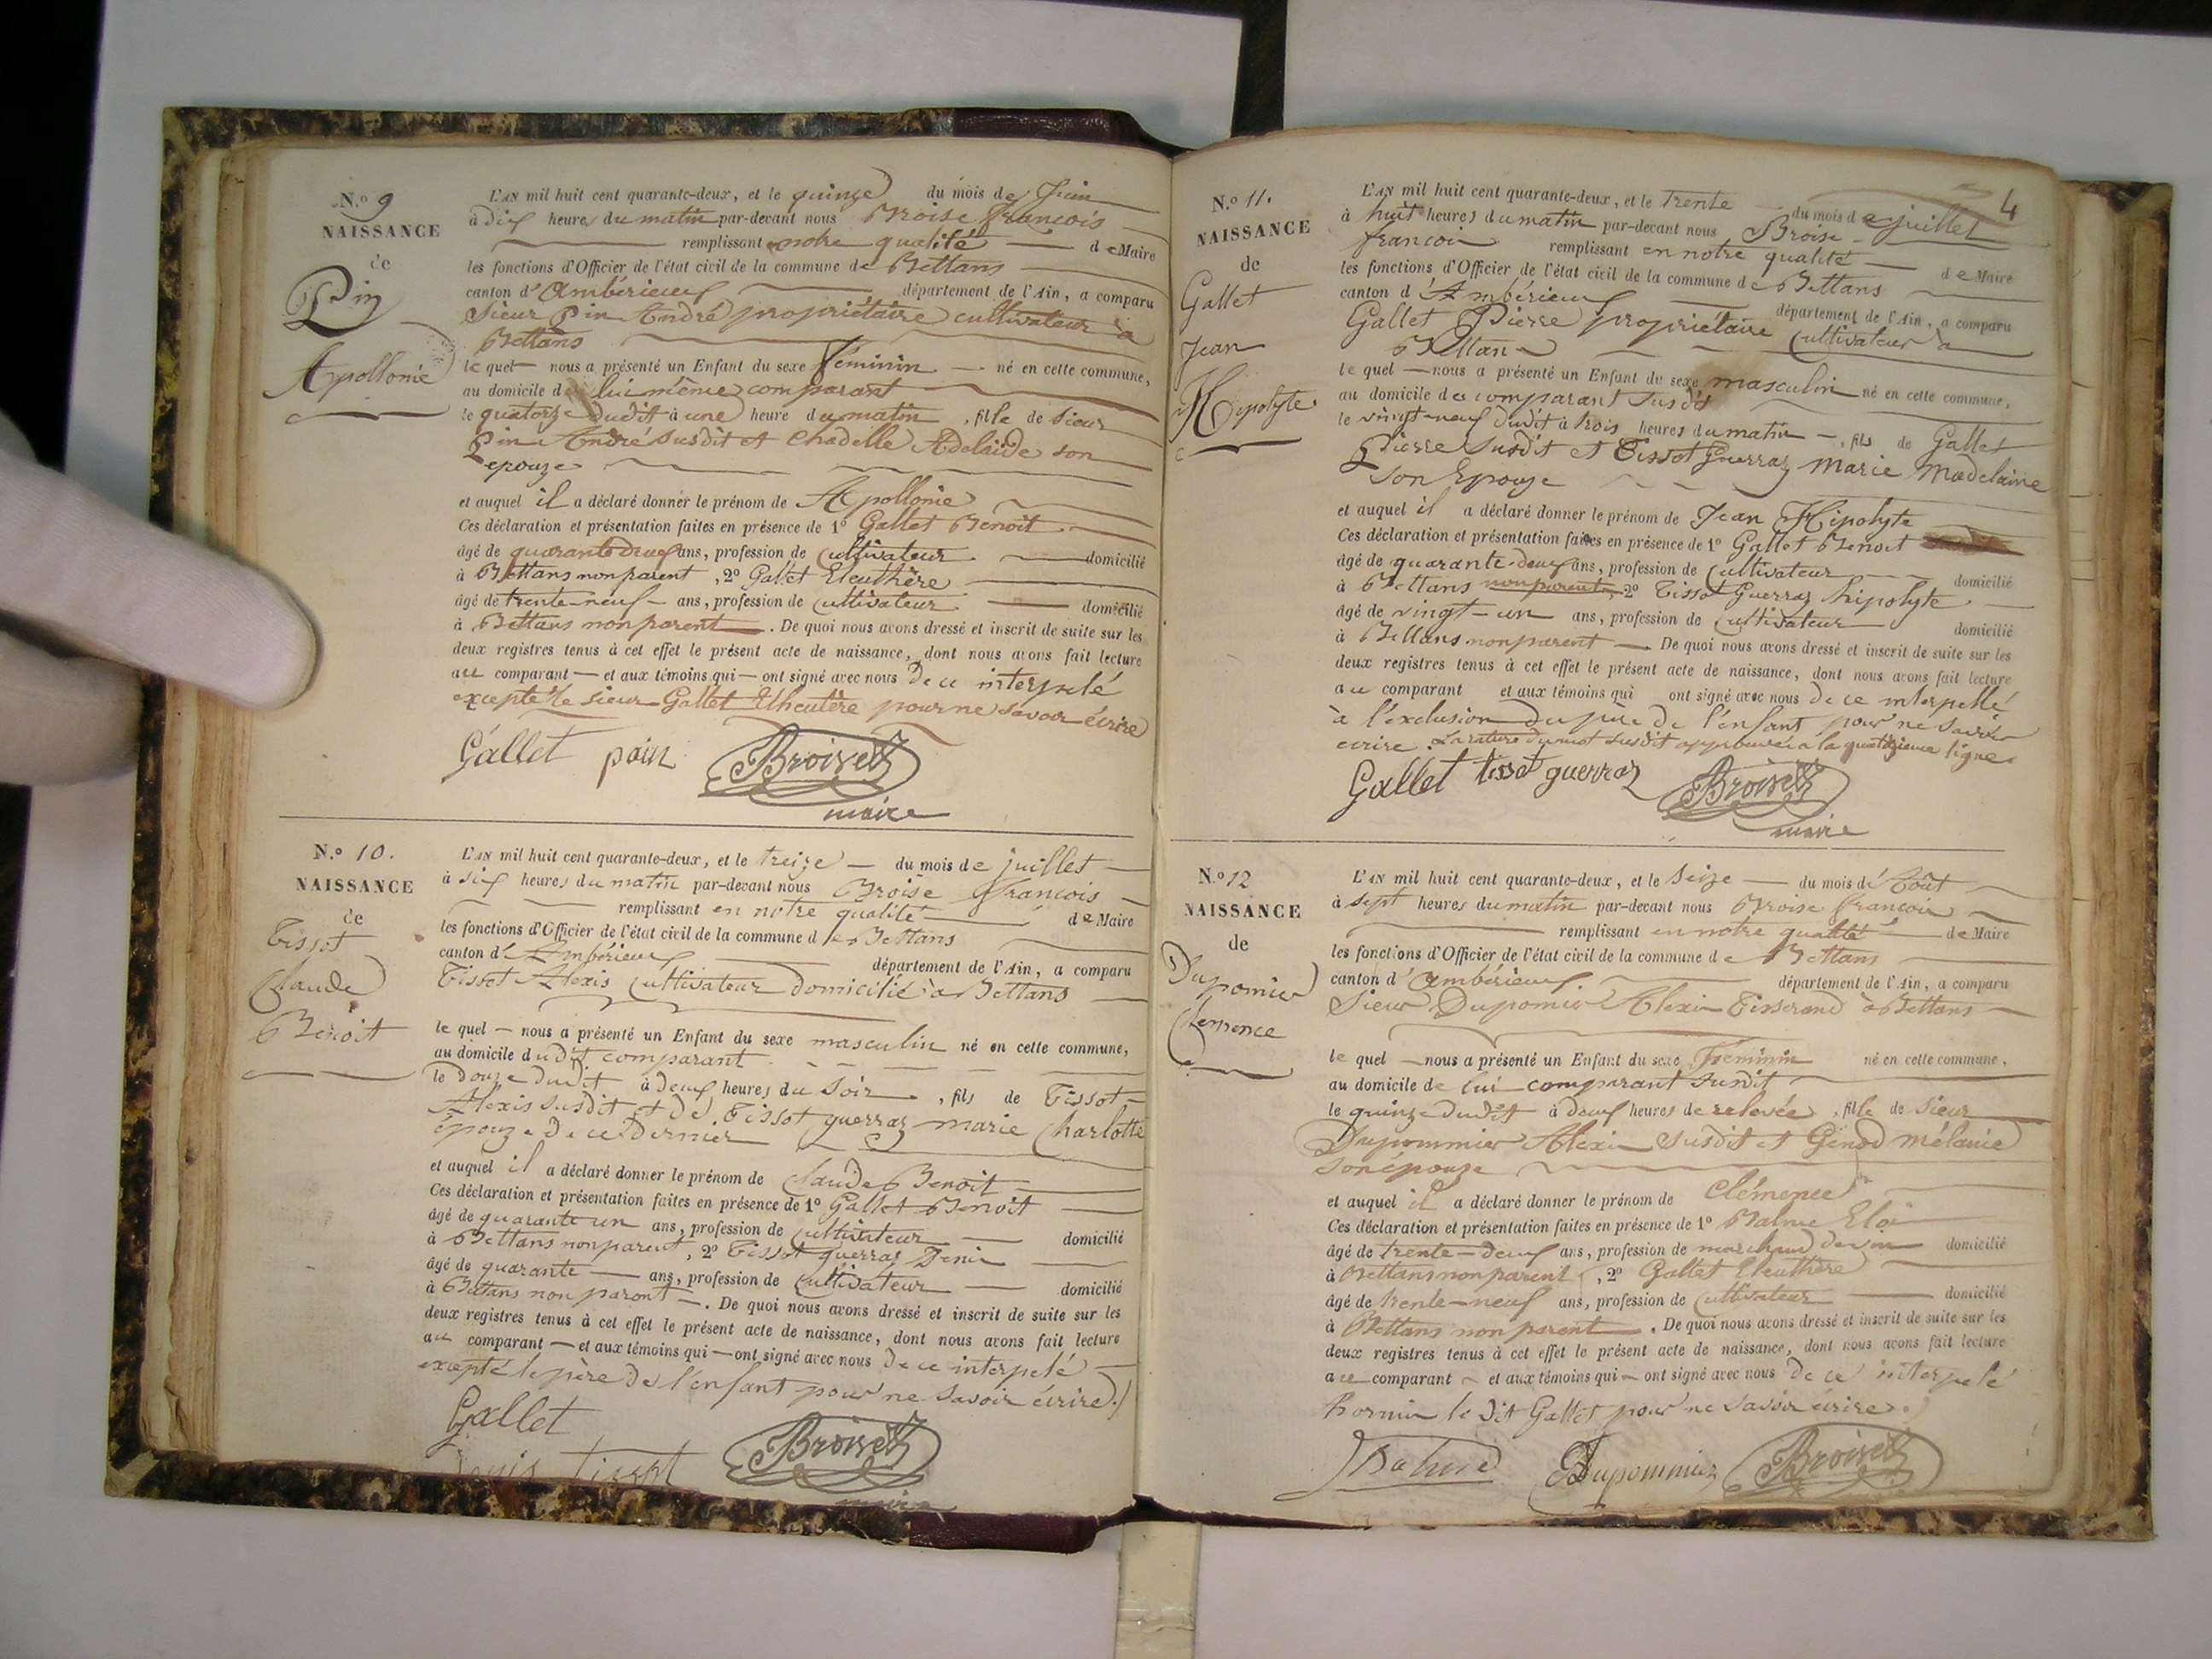 N.º 9
NAISSANCE
de
Pin
Apollonie
L'AN mil huit cent quarante-deux, et le quinze du mois de Juin
à dix heures du matin par-devant nous Broise François
remplissant notre qualité de Maire
les fonctions d'Officier de l'état civil de la commune de Bettans
canton d'Ambérieux département de l'Ain, a comparu
Sieur Pin André propriétaire cultivateur à
Bettans
le quel nous a présenté un Enfant du sexe féminin né en cette commune,
au domicile de lui même comparant
le quatorze dudit à une heure du matin, fille de Sieur
Pin André susdit et Chadelle Adelaide son
epouze
et auquel il a déclaré donner le prénom de Apollonie
Ces déclaration et présentation faites en présence de 1º Gallet Benoit
âgé de quarante deux ans, profession de Cultivateur domicilié
à Bettans non parent, 2º Gallet Eleuthère
âgé de trente-neuf ans, profession de Cultivateur domicilié
à Bettans non parent. De quoi nous avons dressé et inscrit de suite sur les
deux registres tenus à cet effet le présent acte de naissance, dont nous avons fait lecture
au comparant et aux témoins qui ont signé avec nous de ce interpelé
excepté le sieur Gallet Elheutère pour ne savoir écrire
Gallet pain Broise
maire
N.º 10.
NAISSANCE
de
Tissot
Claude
Benoit
L'AN mil huit cent quarante-deux, et le treize du mois de juillet
à six heures du matin par-devant nous Broise François
remplissant en notre qualité de Maire
les fonctions d'Officier de l'état civil de la commune de Bettans
canton d'Ambérieux département de l'Ain, a comparu
Tissot Alexis Cultivateur domicilié à Bettans
le quel nous a présenté un Enfant du sexe masculin né en cette commune,
au domicile dudit comparant
le Douze dudit à deux heures du Soir, fils de Tissot
Alexis susdit et de Tissot guerraz marie Charlotte
épouze de ce Dernier
et auquel il a déclaré donner le prénom de Claude Benoit
Ces déclaration et présentation faites en présence de 1º Gallet Benoit
âgé de quarante un ans, profession de Cultivateur domicilié
à Bettans non parent, 2º Tissot guerraz Denis
âgé de quarante ans, profession de Cultivateur domicilié
à Bettans non parent. De quoi nous avons dressé et inscrit de suite sur les
deux registres tenus à cet effet le présent acte de naissance, dont nous avons fait lecture
au comparant et aux témoins qui ont signé avec nous de ce interpelé
excepté le père de l'enfant pour ne savoir écrire
Gallet
tissot Broise
maire
4
N.º 11.
NAISSANCE
de
Gallet
Jean
Hipolyte
L'AN mil huit cent quarante-deux, et le Trente du mois de juillet
à huit heures du matin par-devant nous Broise
francois remplissant en notre qualité de Maire
les fonctions d'Officier de l'état civil de la commune de Bettans
canton d'Ambérieux département de l'Ain, a comparu
Gallet Pierre propriétaire Cultivateur à
Bettans
le quel nous a présenté un Enfant du sexe masculin né en cette commune,
au domicile du comparant susdit
le vingt-neuf dudit à trois heures du matin, fils de Gallet
Pierre susdit et Tissot Guerraz Marie Madelaine
son Epouze
et auquel il a déclaré donner le prénom de Jean Hipolyte
Ces déclaration et présentation faites en présence de 1º Gallet Benoit
âgé de quarante-deux ans, profession de Cultivateur domicilié
à Bettans non parent, 2º Tissot Guerraz hipolyte
âgé de vingt-un ans, profession de Cultivateur domicilié
à Bettans non parent. De quoi nous avons dressé et inscrit de suite sur les
deux registres tenus à cet effet le présent acte de naissance, dont nous avons fait lecture
au comparant et aux témoins qui ont signé avec nous de ce interpellé
à l'exclusion du père de l'enfant pour ne savoir
ecrire. La rature du mot susdit approuvée a la quatorzieme ligne.
Gallet tissot guerraz Broise
maire
N.º 12
NAISSANCE
de
Dupomier
Clemence
L'AN mil huit cent quarante-deux, et le Seize du mois d'Août
à sept heures du matin par-devant nous Broise francois
remplissant en notre qualité de Maire
les fonctions d'Officier de l'état civil de la commune de Bettans
canton d'Ambérieux département de l'Ain, a comparu
Sieur Dupomier Alexis Tisserand à Bettans
le quel nous a présenté un Enfant du sexe féminin né en cette commune,
au domicile de lui comparant susdit
le quinze dudit à deux heures de relevée, fille de Sieur
Dupommier Alexis susdit et Genod mélanie
son épouze
et auquel il a déclaré donner le prénom de Clémence
Ces déclaration et présentation faites en présence de 1º Balme Eloi
âgé de trente-deux ans, profession de marchand de vin domicilié
à Bettans non parent, 2º Gallet Eleuthère
âgé de trente-neuf ans, profession de Cultivateur domicilié
à Bettans non parent. De quoi nous avons dressé et inscrit de suite sur les
deux registres tenus à cet effet le présent acte de naissance, dont nous avons fait lecture
au comparant et aux témoins qui ont signé avec nous de ce interpelé
hormis le dit Gallet pour ne savoir écrire.
Balme Dupommier Broise